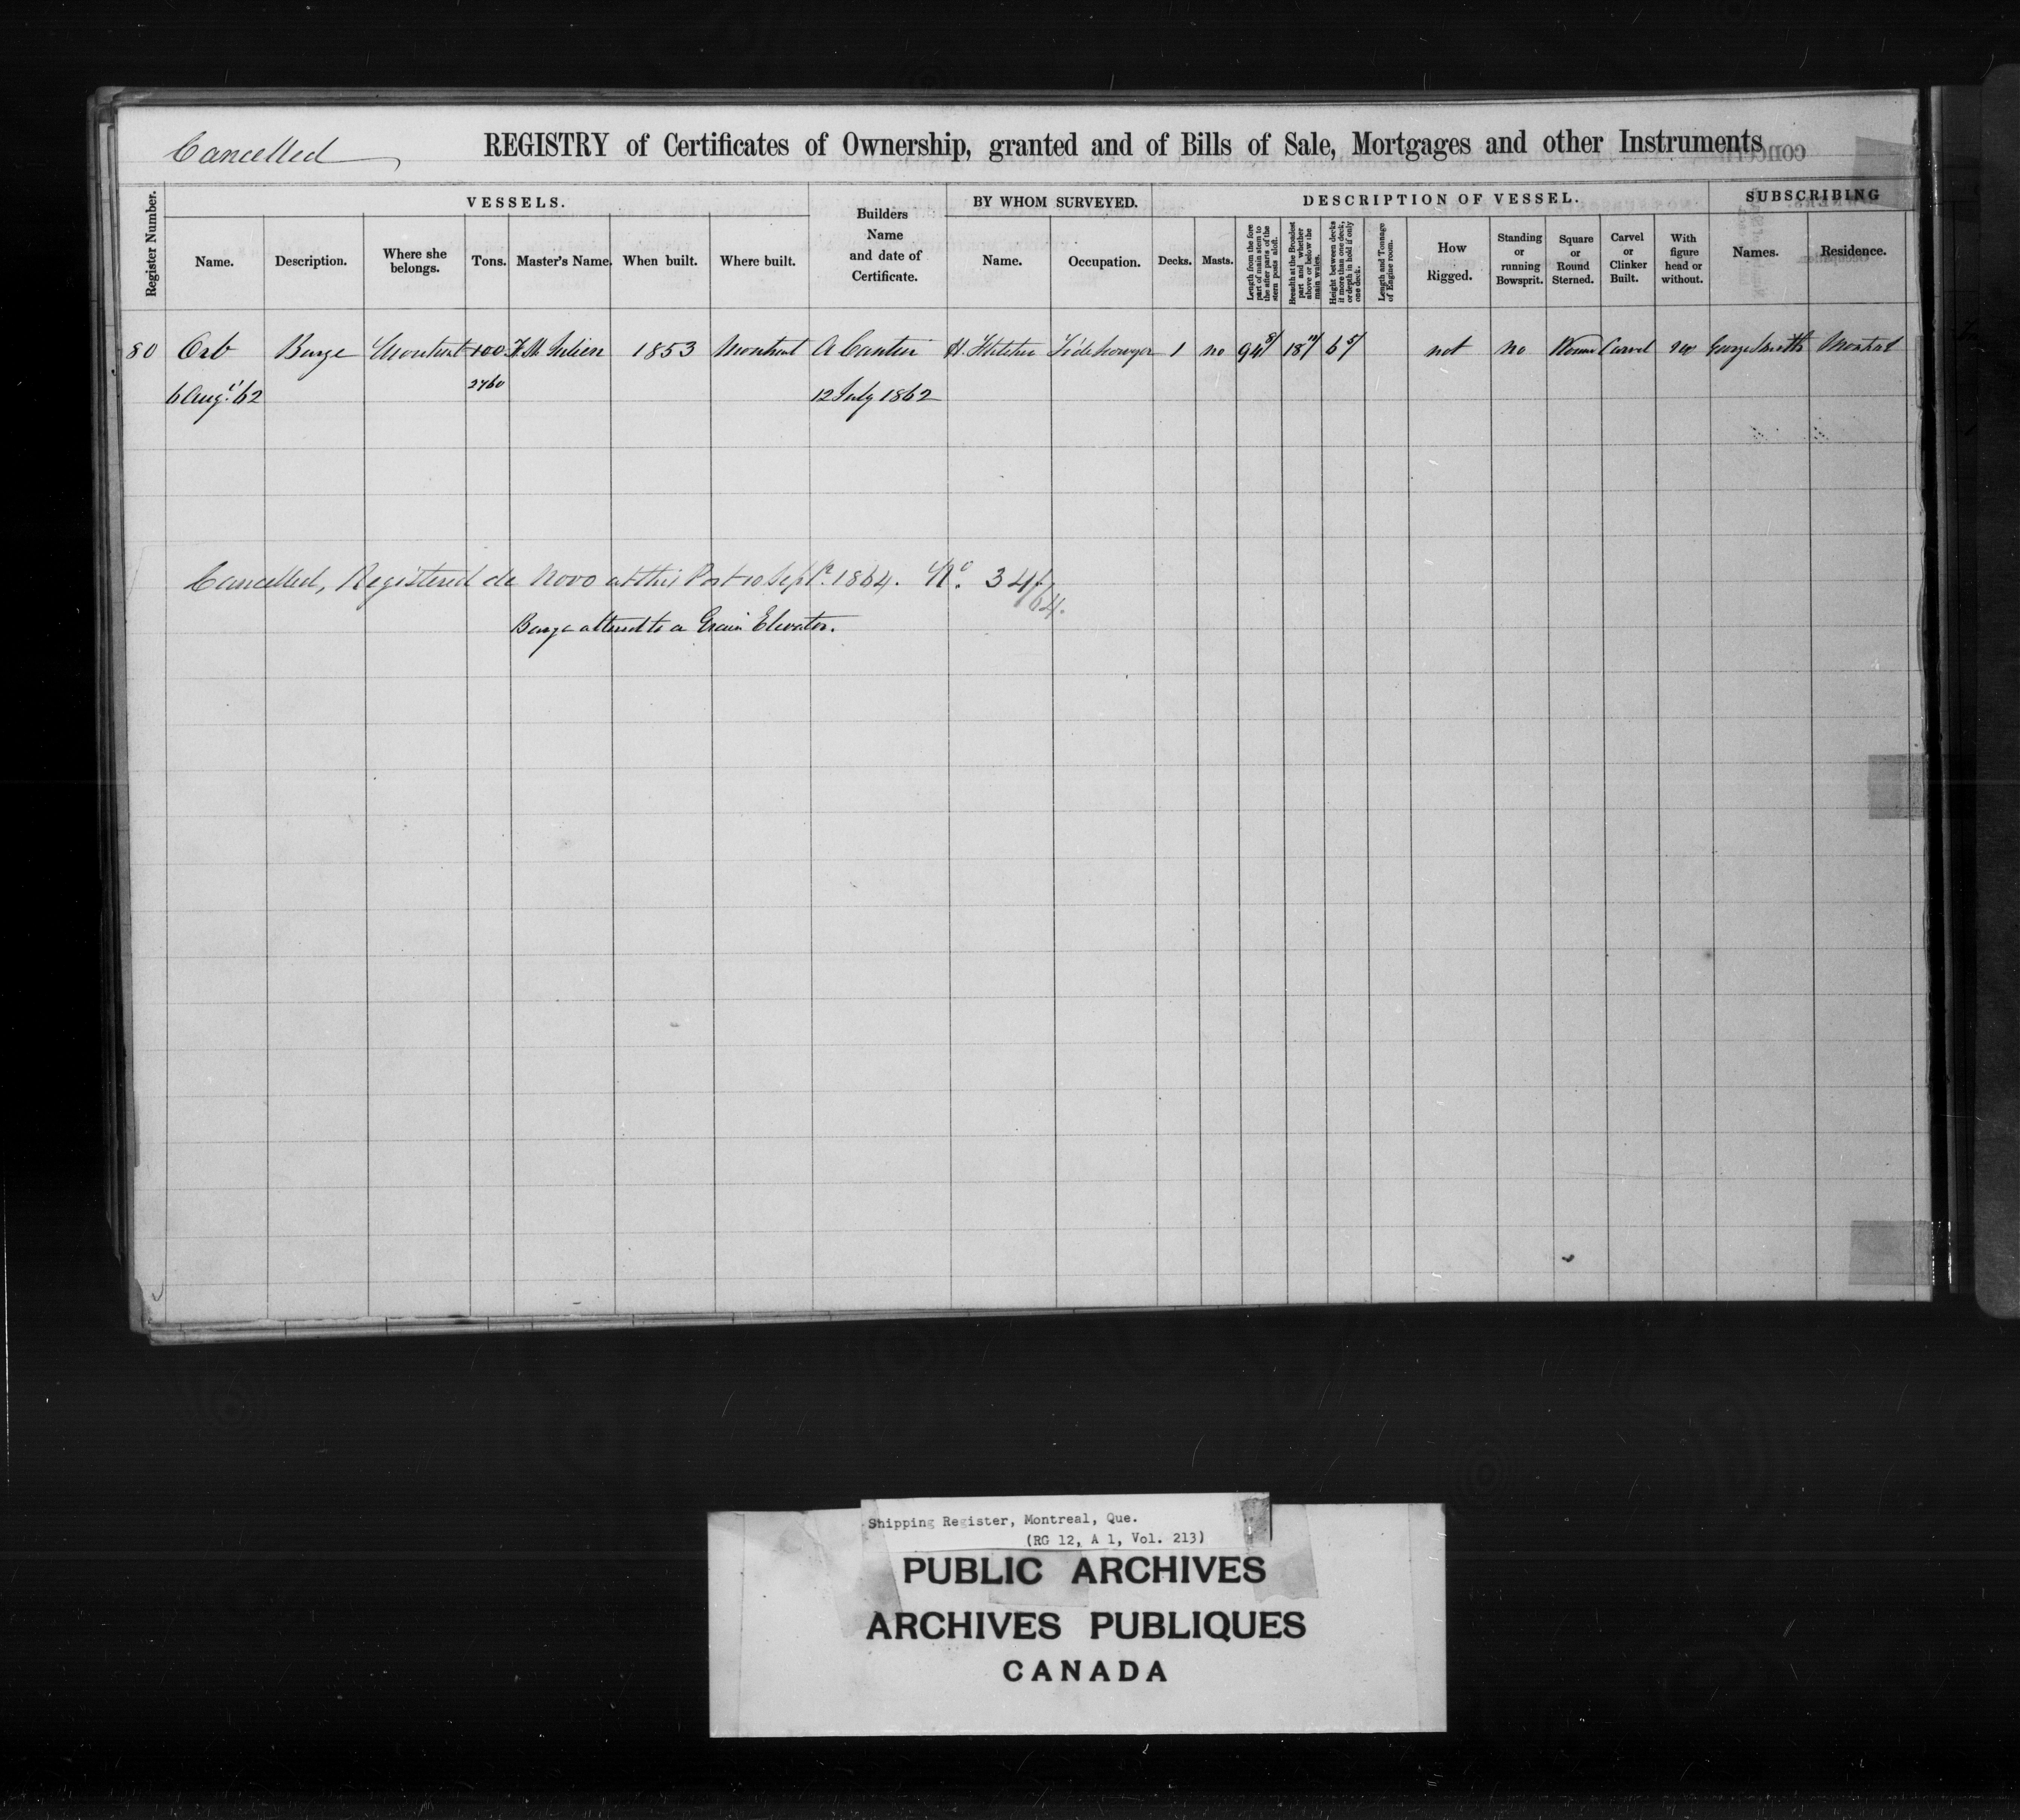 Cancelled
REGISTRY of Certificates of Ownership, granted and of Bills of Sale, Mortgages and other Instruments
Register Number.
VESSELS.
Name.
Description.
Where she belongs.
Tons.
Master's Name.
When built.
Where built.
Builders Name and date of Certificate.
BY WHOM SURVEYED.
Name.
Occupation.
DESCRIPTION OF VESSEL.
Decks.
Masts.
Length from the fore part of main stem to the after parts of the stern posts aloft.
Breadth at the Broadest part and whether above or below the main wales.
Height between decks if more than one deck, or depth in hold if only one deck.
Length and Tonnage of Engine room.
How Rigged.
Standing or running Bowsprit.
Square or Round Sterned.
Carvel or Clinker Built.
With figure head or without.
SUBSCRIBING
Names.
Residence.
80 Orb Barge Montreal 100 St. Julien 1853 Montreal A Cantin H. Fletcher Tide Surveyor 1 no 94 8/ 18 11/ 6 5/ not no Round Carvel no George Smith Montreal
6 Aug't '62 2760 12 July 1862
Cancelled, Registered de Novo at this Port 10 Sept'r 1864. No. 34/64.
Barge altered to a Grain Elevator.
Shipping Register, Montreal, Que.
(RG 12, A 1, Vol. 213)
PUBLIC ARCHIVES
ARCHIVES PUBLIQUES
CANADA